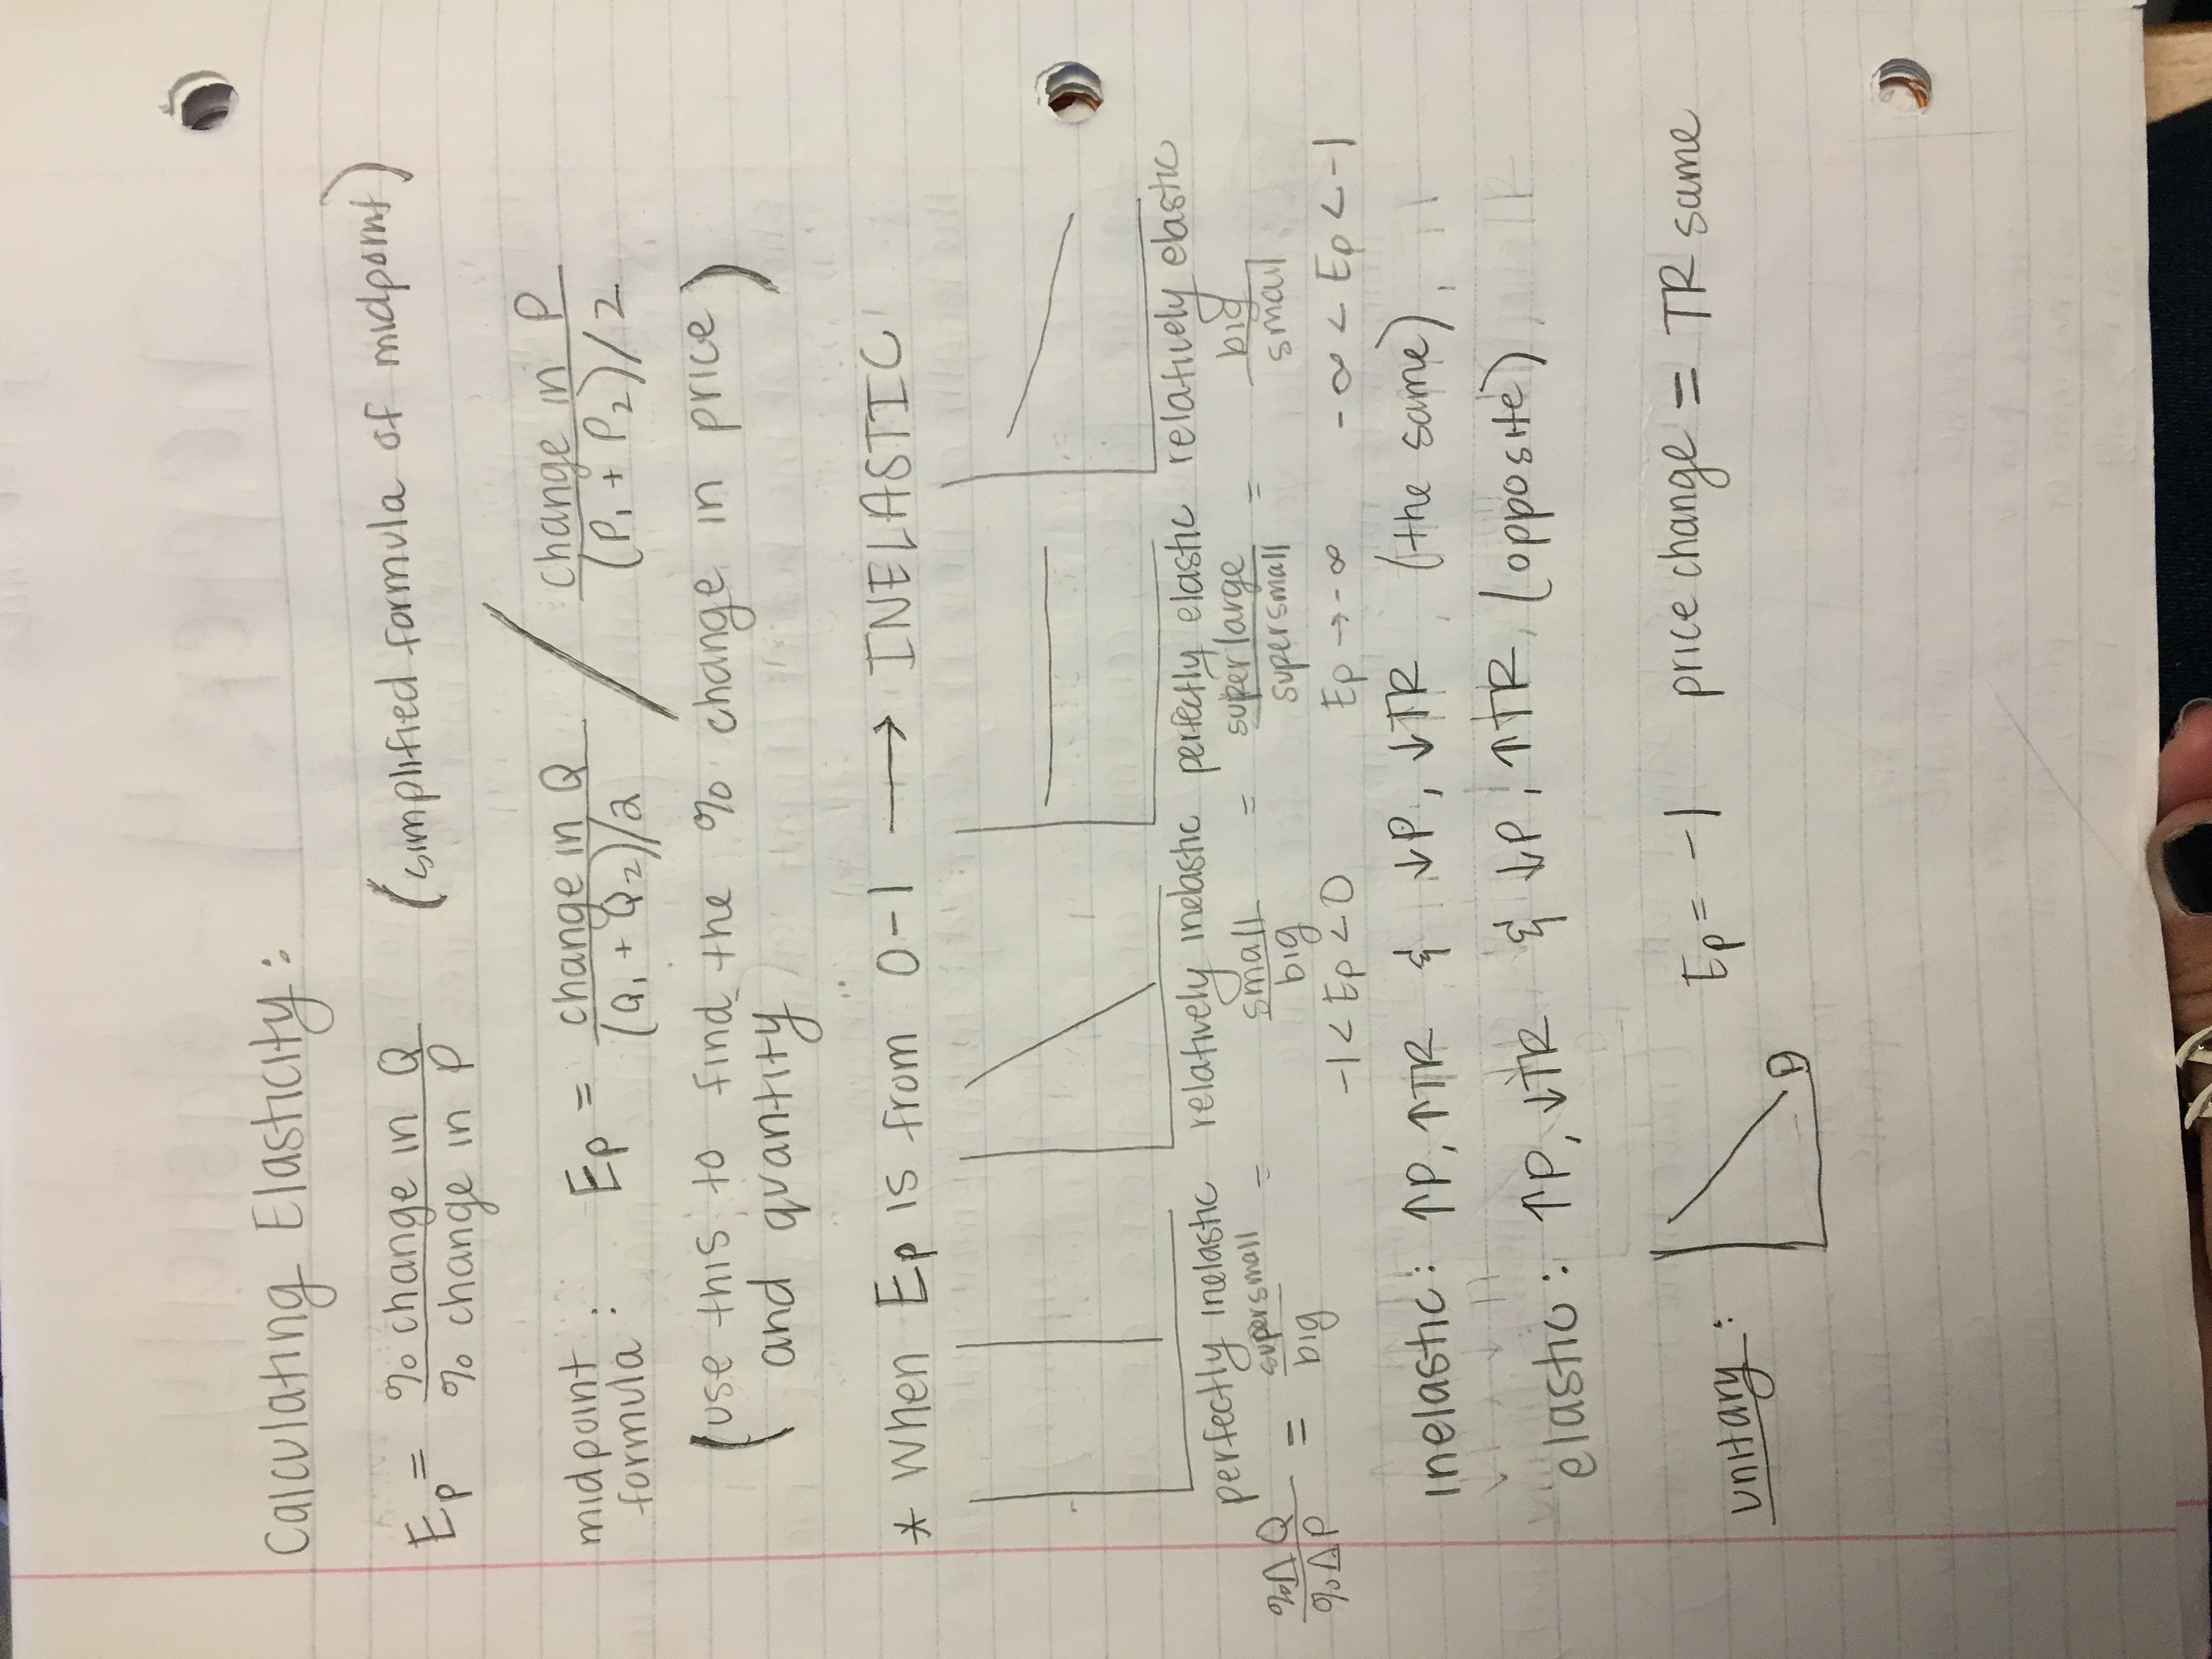 Calculating Elasticity:
Ep = % change in Q / % change in P (simplified formula of midpoint)
midpoint formula: Ep = change in Q / (Q₁ + Q₂)/2 / change in P / (P₁ + P₂)/2
(use this to find the % change in price)
and quantity
* When Ep is from 0-1 → INELASTIC
perfectly inelastic relatively inelastic perfectly elastic relatively elastic
%ΔQ / %ΔP = supersmall / big = small / big = super large / supersmall = big / small
-1 < Ep < 0 Ep → -∞ -∞ < Ep < -1
inelastic: ↑P, ↑TR & ↓P, ↓TR (the same)
elastic: ↑P, ↓TR & ↓P, ↑TR (opposite)
unitary: D Ep = -1 price change = TR same